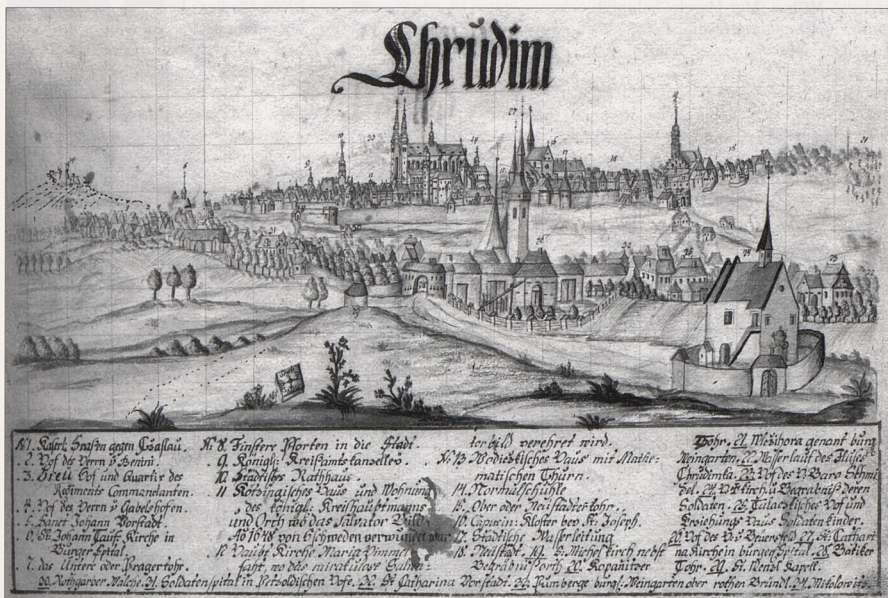 Chrudim
N: 1. Kaiserl: Strasen gegen Czaslau.
2. Hof des Herrn v Bentni.
3. Freu Hof und Quartir des
Regiments Commandanten.
4. Hof des Herrn v Gabelshofen.
5. Sanct Johann Vorstadt.
6. St Johann Tauf: Kirche in
Bürger Spital.
7. das Untere oder Pragertohr.
N: 8. Finstere Pforten in die Stadt
9. Königli: Kreisamts kanzelley.
10 Städtises Rathhaus.
11 Kotzingisches Haus und Wohnung
des königl: Kreishauptmanns
und Orth wo das Salvator Bild
Ao 1648 von Schweden verwundet war
12 Haubt Kirche Maria Himmel
faht, wo das miraculose Salva=
tor bild verehret wird.
N: 13 Wodickisches Haus mit Mathe=
matischen Thurn.
14. Normalschuhle
15. Ober oder Neustädtes tohr.
16. Capucin: Kloster bey St: Joseph.
17 Städtische Wasserleitung
18 Neustadt. 19. S: Michel kirch nebst
Begräbnüs orth 20. Kopanitver
Tohr. 21. Wezihora genant bürg
Weingarten. 22. Wasserlauf des Fluses
Chrudimka. 23. Hof des H: Baro Schmi
del. 24. kirch u Begräbnis deren
Soldaten. 25. Hof und
Erziehungs Haus Soldaten kinder.
26. Hof des 27. St: Cathari
na Kirche in bürgen Spital. 28.
Tohr. 29. St: Kapell.
30. Malche. 31. Soldaten spital in Hofe. 32. St Catharina Vorstadt. 33. Pumberge bürgl: Weingarten ober rothen Bründl. 34